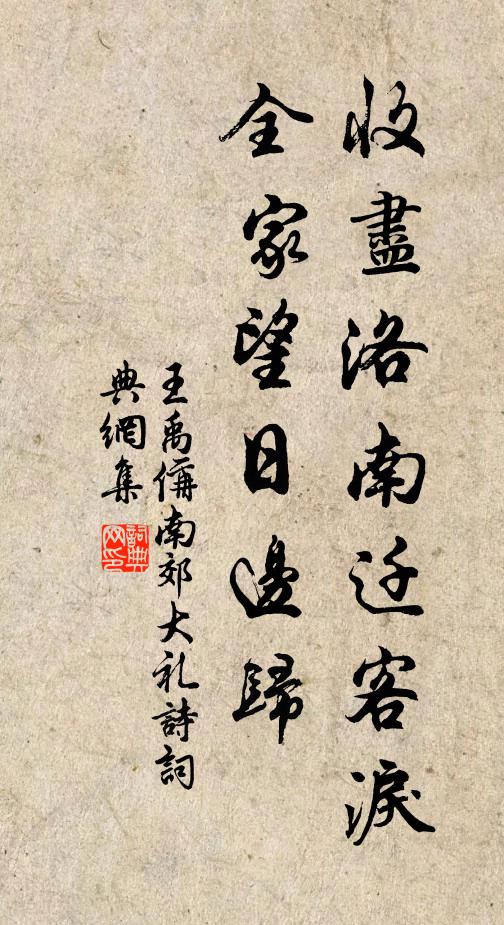 收盡洛南迁客淚
全家望日邊歸
王禹偁南郊大礼詩詞
典網集
詞典
网印